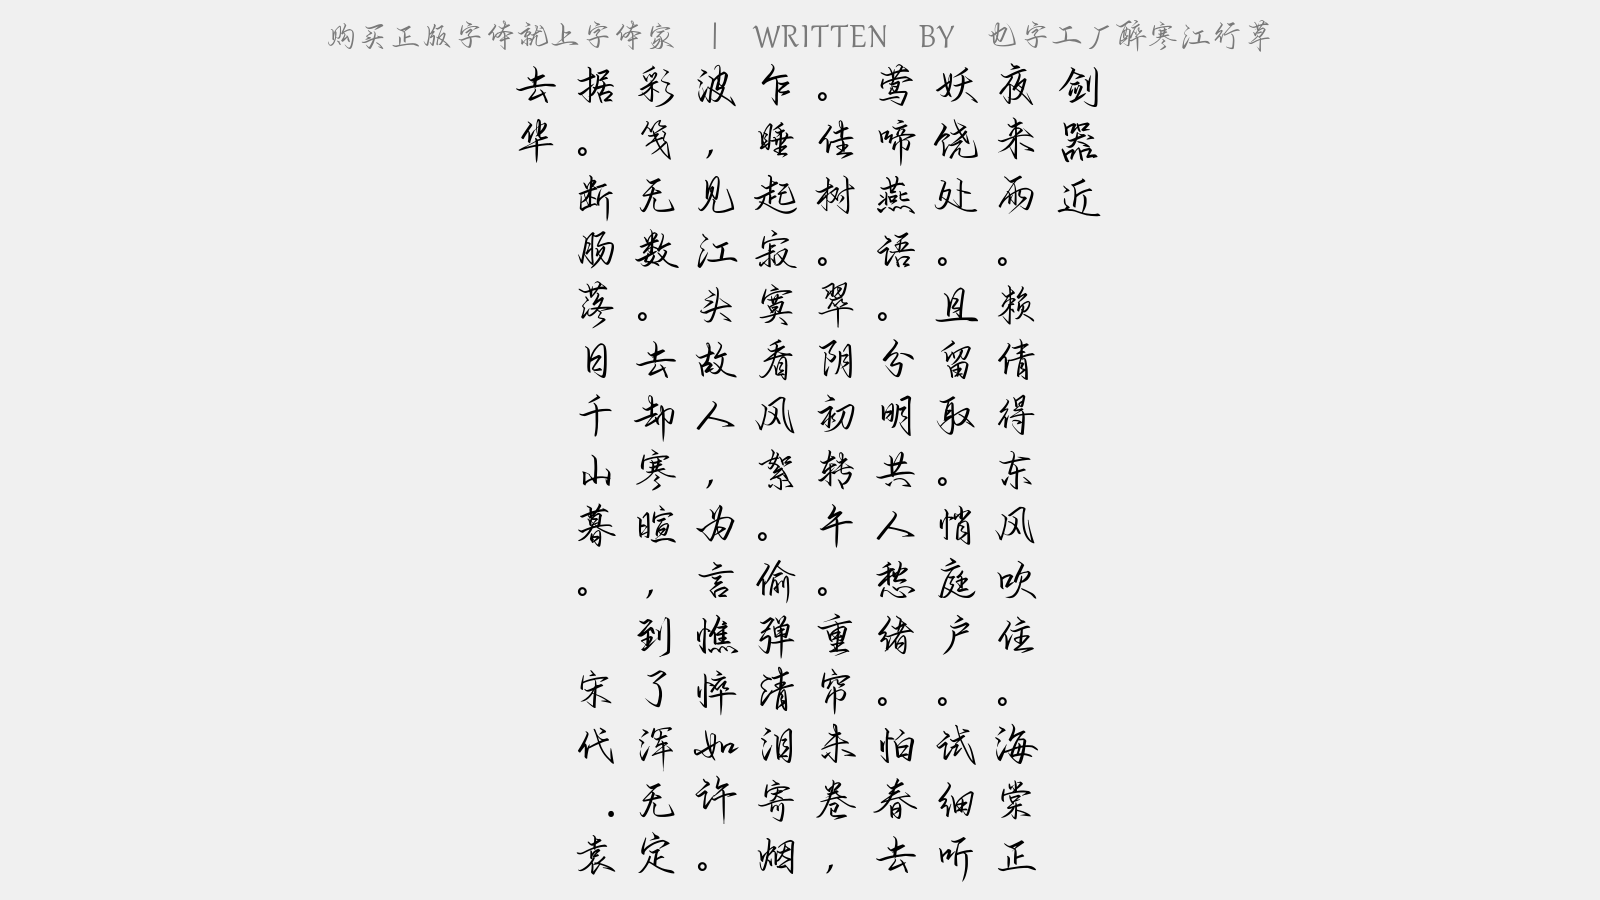 购买正版字体就上字体家 | WRITTEN BY 也字工厂醉寒江行草
剑器近
夜来雨。赖倩得东风吹住。海棠正
妖饶处。且留取。悄庭户。试细听
莺啼燕语。分明共人愁绪。怕春去
。佳树。翠阴初转午。重帘未卷，
乍睡起寂寞看风絮。偷弹清泪寄烟
波，见江头故人，为言憔悴如许。
彩笺无数。去却寒暄，到了浑无定
据。断肠落日千山暮。 宋代.袁
去华